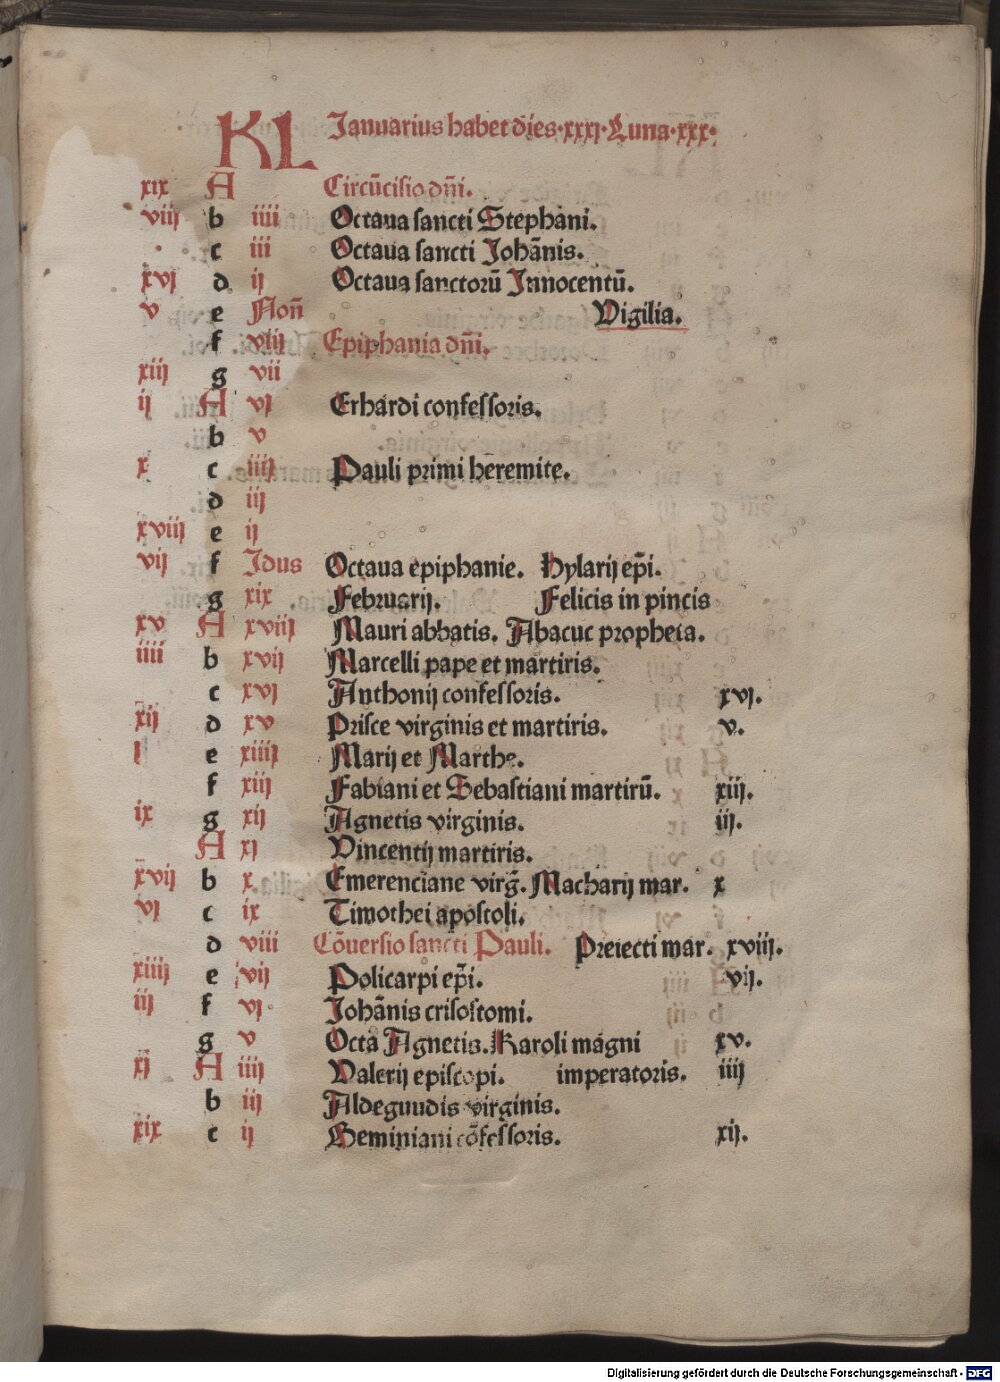 KL Januarius habet dies·xxxj·Luna·xxx·
xix A Circūcisio dn̄i.
viij b iiii Octaua sancti Stephani.
c iii Octaua sancti Johānis.
xvj d ij Octaua sanctorū Innocentū.
v e Non̄ Vigilia.
f viij Epiphania dn̄i.
xiij g vii
ij A vj Erhardi confessoris.
b v
x c iiij Pauli primi heremite.
d iij
xviij e ij
vij f Jdus Octaua epiphanie. Hylarij ep̄i.
g xix Februarij. Felicis in pincis
xv A xviij Mauri abbatis. Abacuc propheta.
iiii b xvij Marcelli pape et martiris.
c xvj Anthonij confessoris. xvj.
xij d xv Prisce virginis et martiris. v.
I e xiiij Marij et Marthe.
f xiij Fabiani et Sebastiani martirū. xiij.
ix g xij Agnetis virginis. iij.
A xj Vincentij martiris.
xvij b x Emerenciane virḡ. Macharij mar. x
vj c ix Timothei apostoli.
d viii Cōuersio sancti Pauli. Preiecti mar. xviij.
xiiij e vij Policarpi ep̄i. vij.
iij f vj Johānis crisostomi.
g v Octā Agnetis. Karoli magni xv.
xj A iiij Valerij episcopi. imperatoris. iiij
b iij Aldegundis virginis.
xix c ij Geminiani cōfessoris. xij.
Digitalisierung gefördert durch die Deutsche Forschungsgemeinschaft - DFG